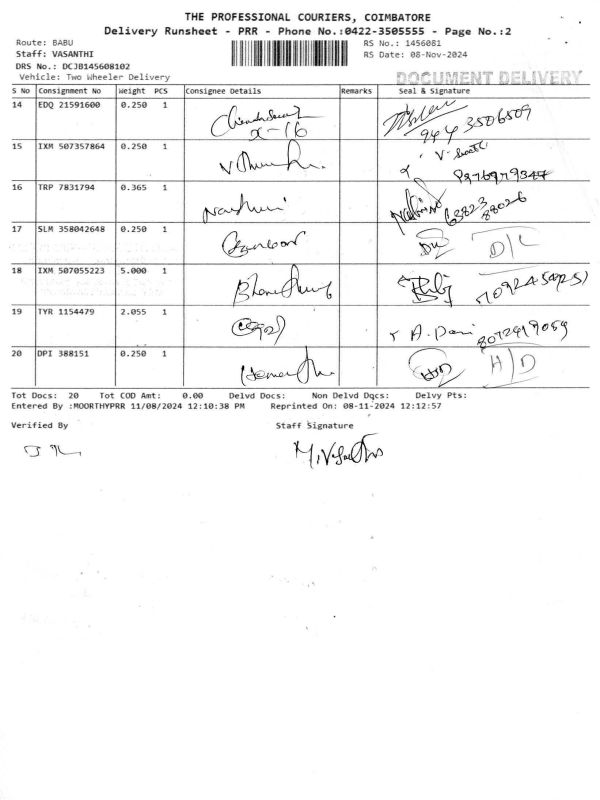 THE PROFESSIONAL COURIERS, COIMBATORE
Delivery Runsheet - PRR - Phone No.:0422-3505555 - Page No.:2
Route: BABU RS No.: 1456081
Staff: VASANTHI RS Date: 08-Nov-2024
DRS No.: DCJB145608102
Vehicle: Two Wheeler Delivery DOCUMENT DELIVERY
S No Consignment No Weight PCS Consignee Details Remarks Seal & Signature
14 EDQ 21591600 0.250 1 X-16 944 3506509
15 IXM 507357864 0.250 1
16 TRP 7831794 0.365 1 63823 88026
17 SLM 358042648 0.250 1 D/L
18 IXM 507055223 5.000 1
19 TYR 1154479 2.055 1 8072419059
20 DPI 388151 0.250 1 H/D
Tot Docs: 20 Tot COD Amt: 0.00 Delvd Docs: Non Delvd Docs: Delvy Pts:
Entered By :MOORTHYPRR 11/08/2024 12:10:38 PM Reprinted On: 08-11-2024 12:12:57
Verified By Staff Signature